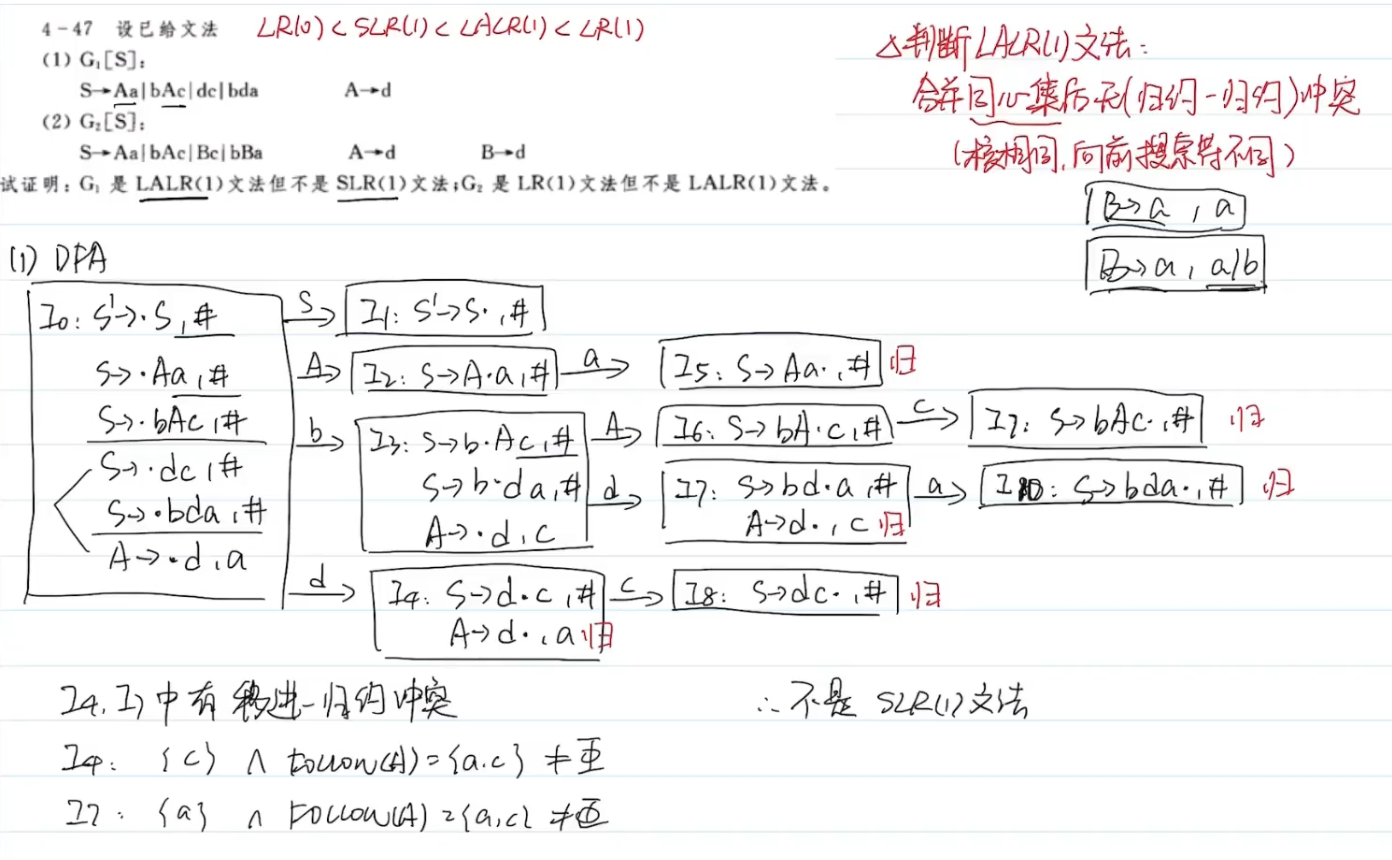 4-47 设已给文法 LR(0) < SLR(1) < LALR(1) < LR(1)
(1) G₁[S]:
S→Aa|bAc|dc|bda A→d
(2) G₂[S]:
S→Aa|bAc|Bc|bBa A→d B→d
试证明:G₁ 是 LALR(1)文法但不是 SLR(1)文法;G₂ 是 LR(1)文法但不是 LALR(1)文法。
△判断LALR(1)文法:
合并同心集后无(归约-归约)冲突
(核相同,向前搜索符不同)
B→a , a
B→a , a/b
(1) DFA
I0: S'→·S,#
S→·Aa,#
S→·bAc,#
S→·dc,#
S→·bda,#
A→·d,a
S
I1: S'→S·,#
A
I2: S→A·a,#
a
I5: S→Aa·,# 归
b
I3: S→b·Ac,#
S→b·da,#
A→·d,c
A
I6: S→bA·c,#
c
I7: S→bAc·,# 归
d
I7: S→bd·a,#
A→d·,c 归
a
I10: S→bda·,# 归
d
I4: S→d·c,#
A→d·,a 归
c
I8: S→dc·,# 归
I4,I7中有移进-归约冲突 ∴不是SLR(1)文法
I4: {c} ∩ FOLLOW(A)={a,c} ≠
I7: {a} ∩ FOLLOW(A)={a,c} ≠